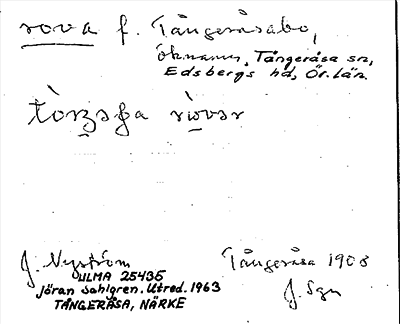 rova f. Tångeråsabo,
öknamn, Tångeråsa sn,
Edsbergs hd, Ör. län.
rẁvər
J. Nyström
ULMA 25435
Jöran Sahlgren. Utred. 1963
TÅNGERÅSA, NÄRKE
Tångeråsa 1908
J. Sgn